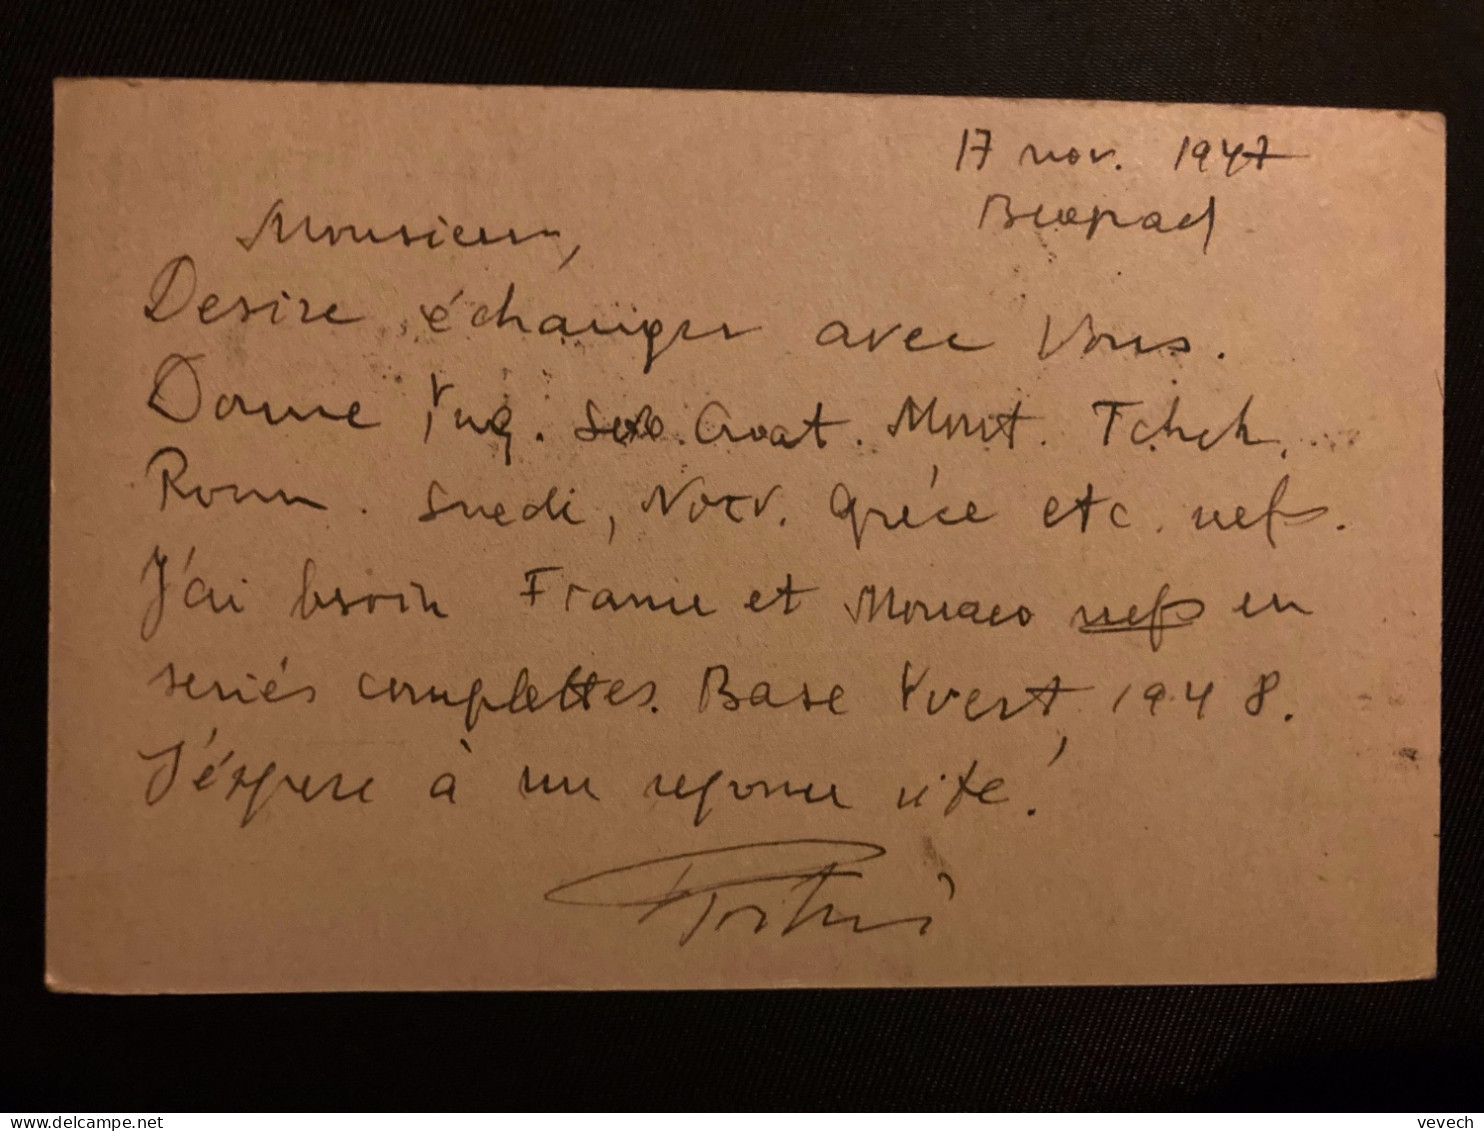 17 nov. 1947
Beograd
Monsieur,
Desire échanger avec Vous.
Donne Yug. Serb. Croat. Mont. Tchch.
Roum. Suedi, Norv. Gréce etc. nefs.
J'ai besoin France et Monaco nefs en
seriés complettes. Base Yvert 1948.
J'éspere à un reponse vite!
vevech